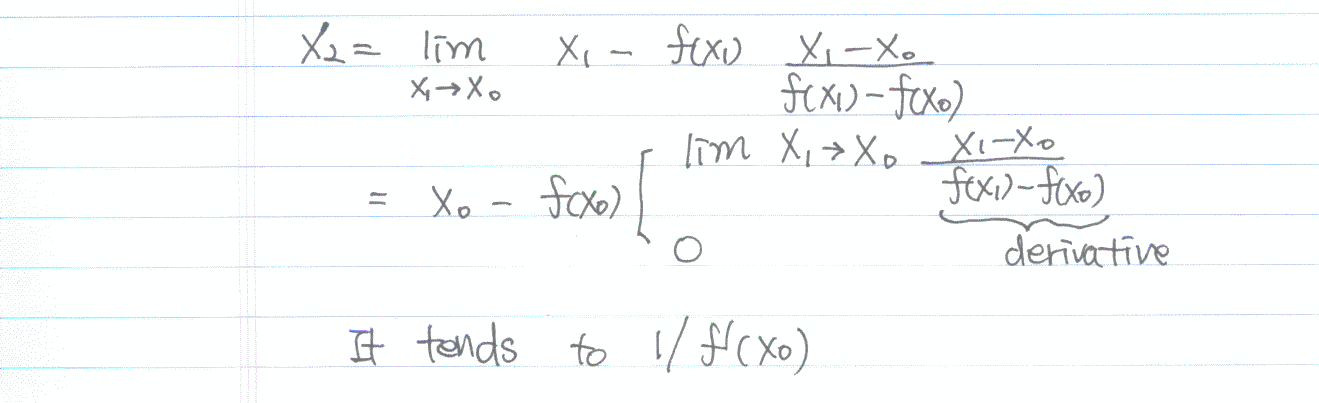 X₂ = lim X₁ - f(X₁) X₁-X₀ / f(X₁)-f(X₀)
X₁→X₀
= X₀ - f(X₀) [ lim X₁→X₀ X₁-X₀ / f(X₁)-f(X₀)
0
derivative
It tends to 1/f'(X₀)